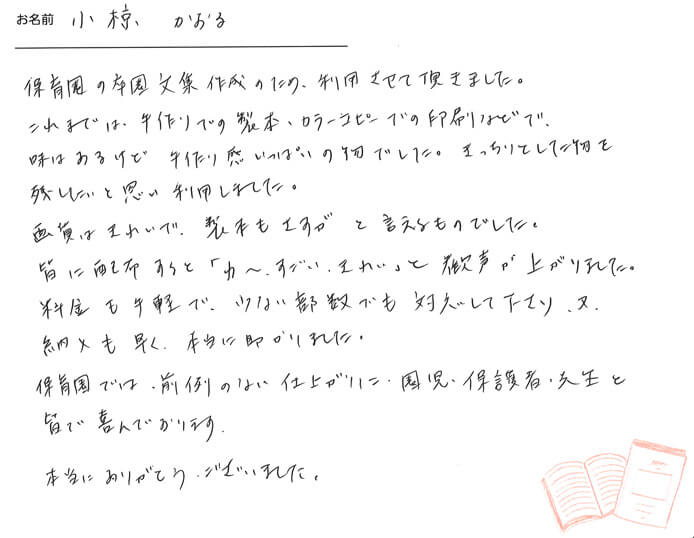 お名前 小椋 かおる
保育園の卒園文集作成のため、利用させて頂きました。
これまでは、手作りでの製本、カラーコピーでの印刷などで、
味はあるけど 手作り感いっぱいの物でした。きっちりとした物を
残したいと思い利用しました。
画質はきれいで、製本もさすが と言えるものでした。
皆に配布すると「わ〜、すごい、きれい」と歓声が上がりました。
料金も手軽で、少ない部数でも対応して下さり、又、
納メも早く、本当に助かりました。
保育園では、前例のない仕上がりに、園児・保護者・先生と
皆で喜んでおります。
本当にありがとうございました。